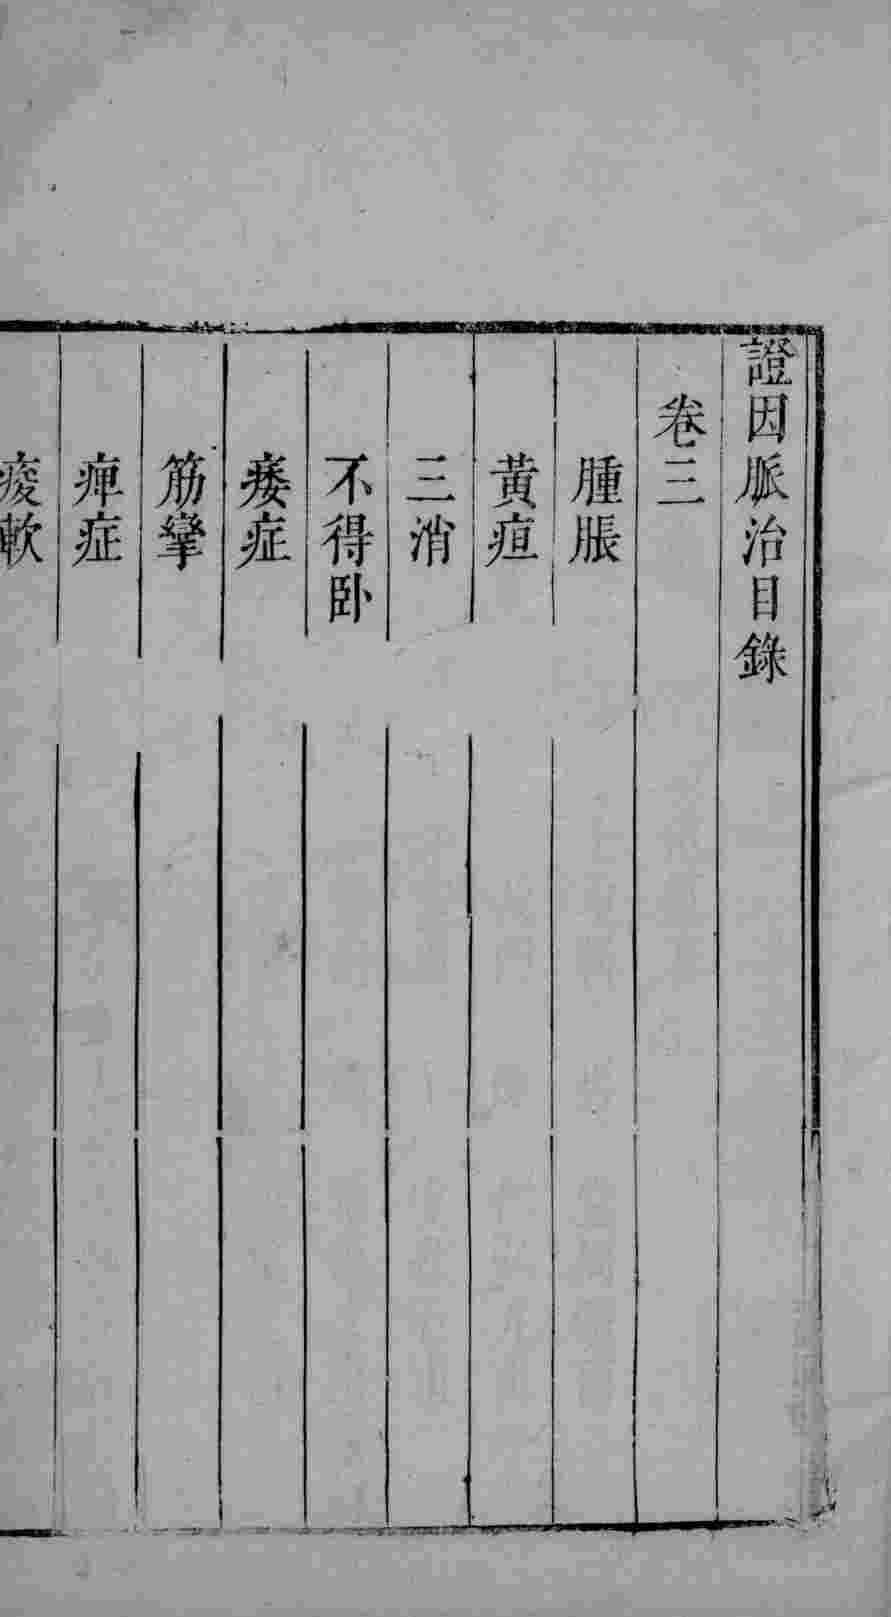 證因脈治目錄
卷三
腫脹
黃疸
三消
不得卧
痿症
筋攣
痺症
痠軟